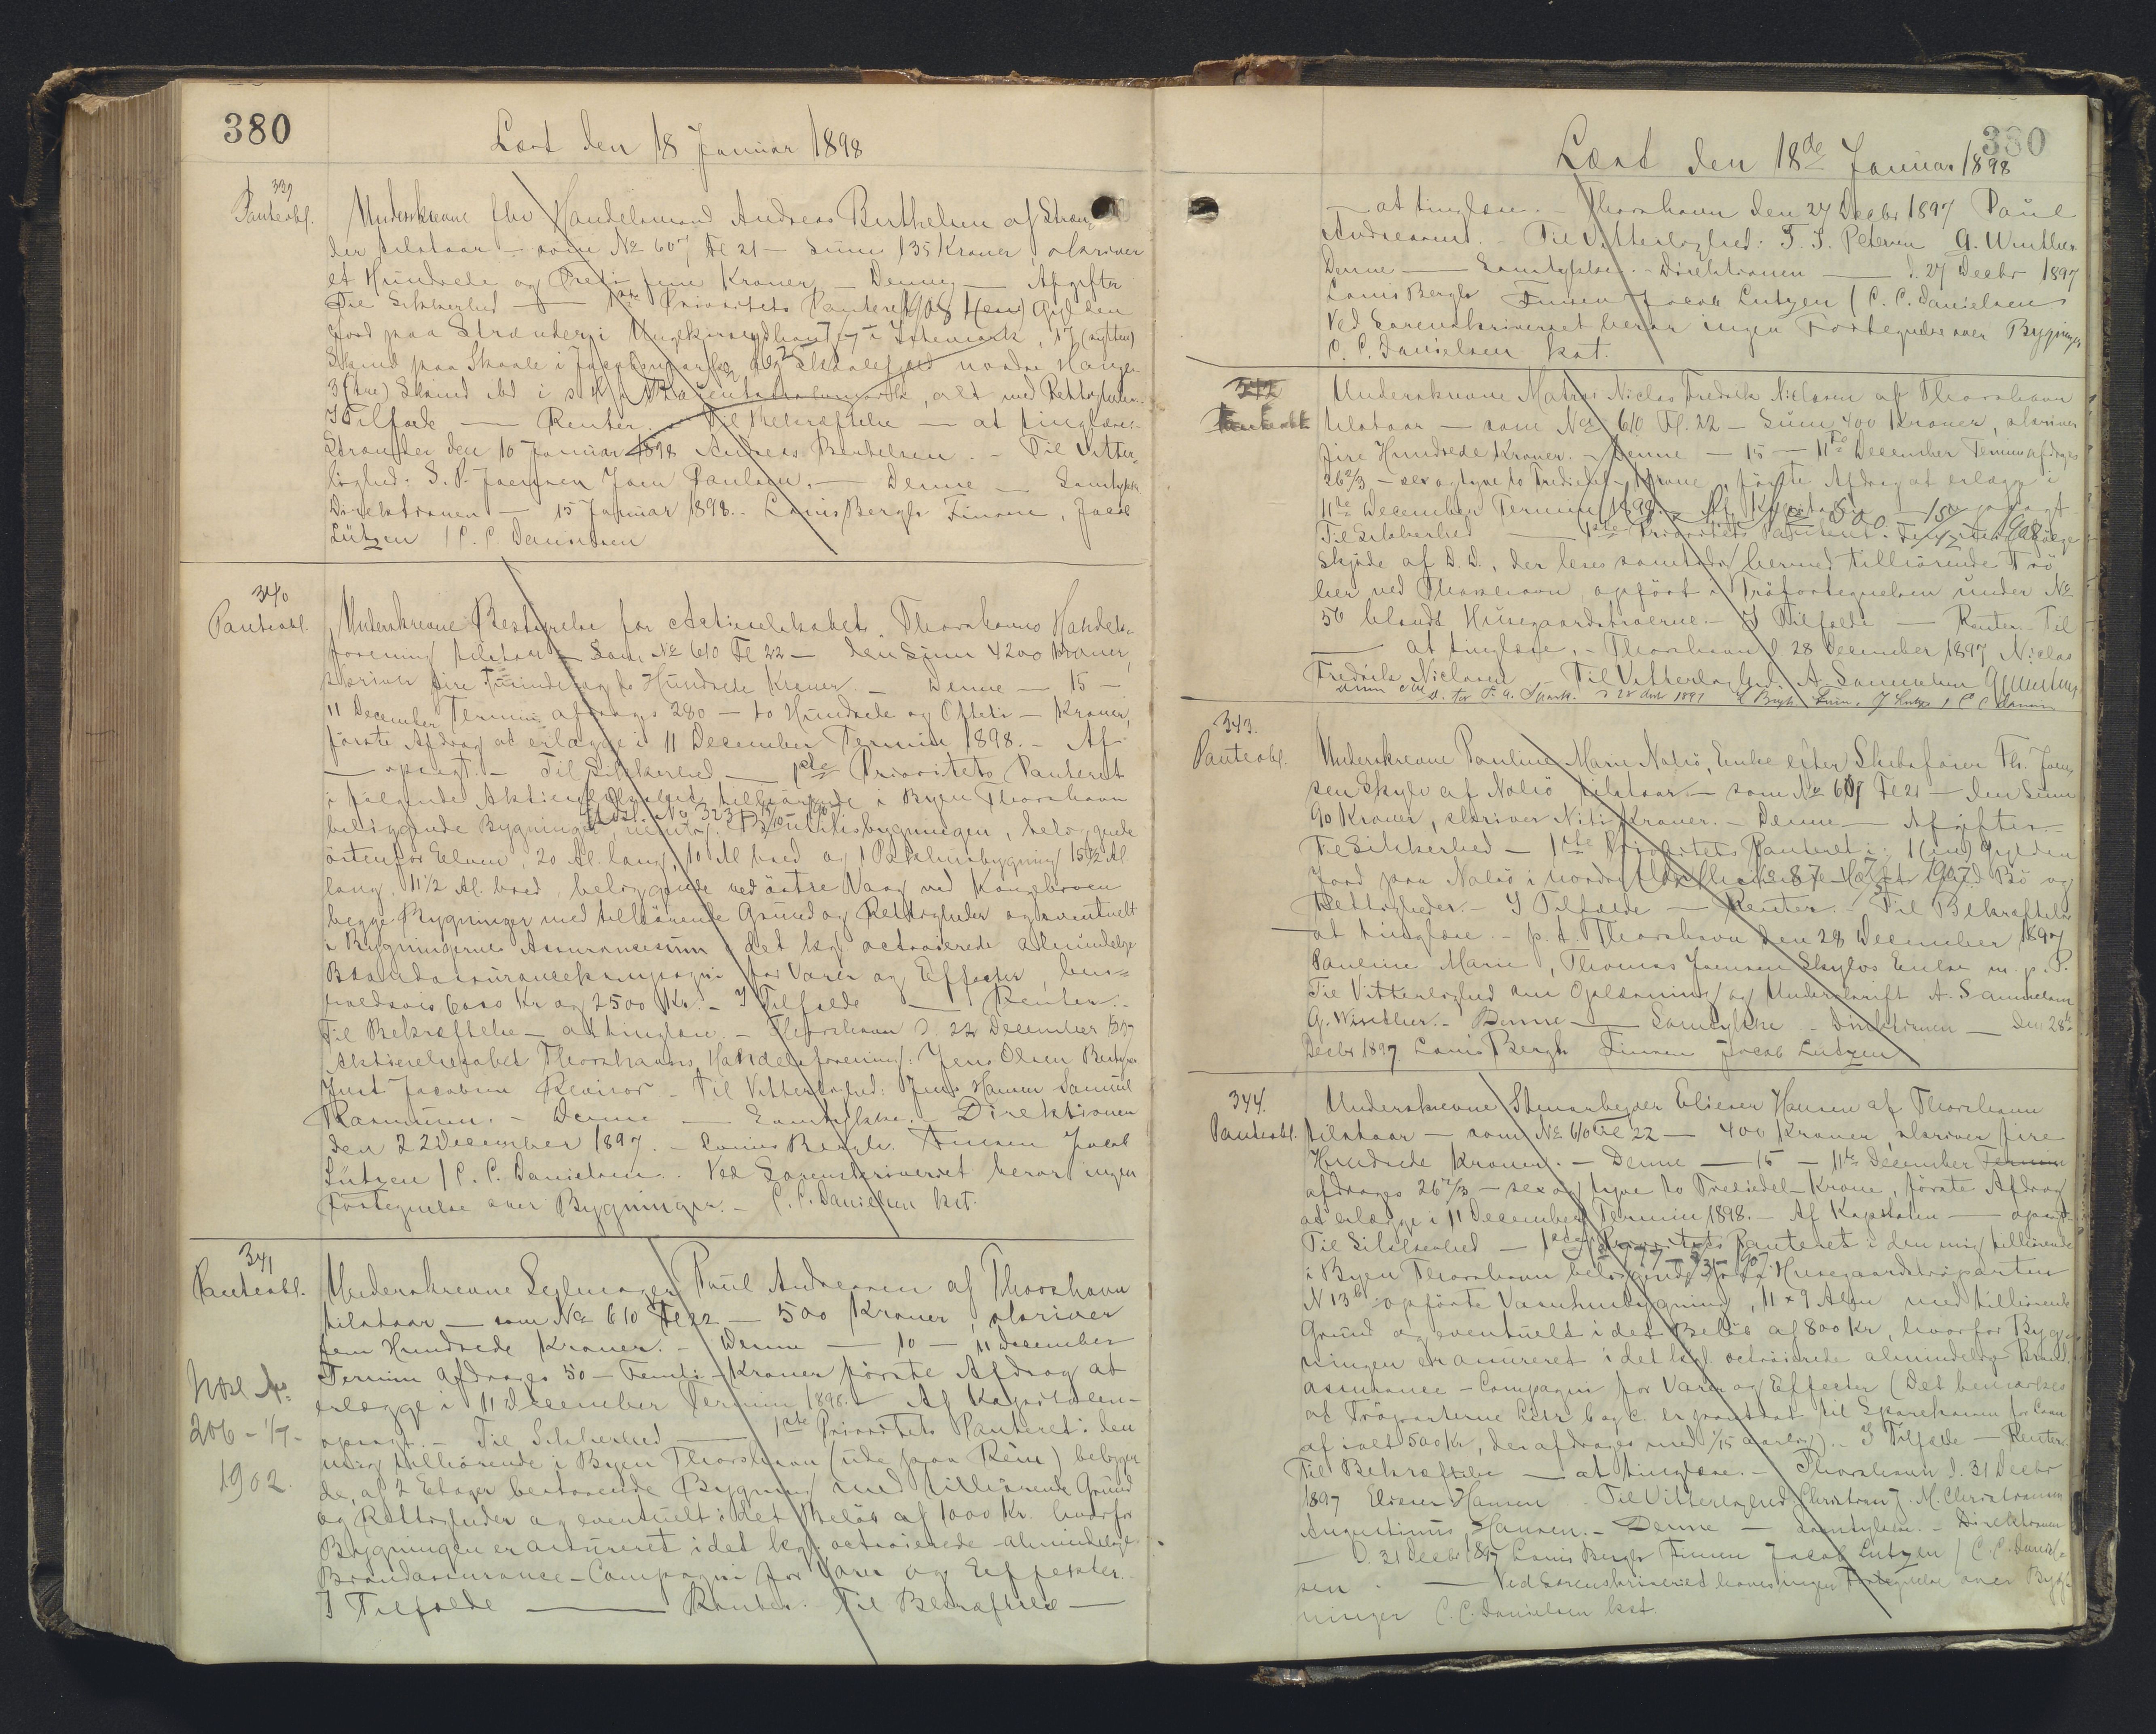 380
Læst den 18 Januar 1898
339
Panteobl.
Underskrevne Handelsmand Andreas Berthelsen af Stræn-
der tilstaar - som No 607 Fl 21 - Sum 135 Kroner, skriver
et Hundrede og Treti fem Kroner. - Denne - Afgifter
Til Sikkerhed - 1ste Prioritets Panteret i (en) Gyl den
Jord paa Strænder i
Skind paa Skaale i
3 (tre) Skind ibd i , alt med Rettigheder.
I Tilfælde - Renter. - Til Bekræftelse - at tinglæse.
Strænder den 10 Januar 1898 Andreas Bertelsen. - Til Vitter-
lighed: S. P. Joensen Joen Paulsen. - Denne - Samtykke
Direktionen - 15 Januar 1898. - Louis Bergh Finsen, Jacob
Lützen / C. C. Danielsen
340
Panteobl.
Underskrevne Bestyrelse for Actieselskabet Thorshavns Handels-
forening tilstaar - Som No 610 Fl 22 - den Sum 4200 Kroner,
skriver fire Tusinde og to Hundrede Kroner. - Denne - 15 -
11 December Termin afdrages 280 - to Hundrede og Otteti - Kroner,
første Afdrag at erlægge i 11 December Termin 1898. - Af
- opsagt. - Til Sikkerhed - 1ste Prioritets Panteret
i følgende Aktieselskabet tilhørende i Byen Thorshavn
beliggende Bygninger, nemlig: Butiksbygningen, beliggende
østenfor Eelven, 20 Al. lang, 10 Al bred og 1 Pakhusbygning 15 1/2 Al.
lang, 11 1/2 Al. bred, beliggende ved østre Vaag ved Kongebroen
begge Bygninger med tilhørende Grund og Rettigheder og eventuelt
i Bygningernes Assurancesum i det kgl octroierede almindelige
Brandassurancekompagni for Varer og Effecter, hen-
holdsvis 6000 Kr og 2500 Kr. - I Tilfælde - Renter. -
Til Bekræftelse - at tinglæse. - Thorshavn d. 22 December 1897
Aktieselskabet Thorshavns Handelsforening: Jens Olsen
Just Jacobsen - Til Vitterlighed: Jens Hansen Samuel
Rasmussen. - Denne - Samtykke. - Direktionen
den 22 December 1897. - Louis Bergh. Finsen Jacob
Lützen / C. C. Danielsen. Ved Sorenskriveriet beror ingen
Fortegnelse over Bygninger. - C. C. Danielsen kst.
341
Panteobl.
Underskrevne Sejlmager Poul Andreasen af Thorshavn
tilstaar - som No 610 Fl 22 - 500 Kroner, skriver
fem Hundrede Kroner. - Denne - 10 - 11 December
Termin afdrages 50 - Femti - Kroner første Afdrag at
erlægge i 11 December Termin 1898. - Af Kapitalen -
opsagt. - Til Sikkerhed - 1ste Prioritets Panteret i den
mig tilhørende i Byen Thorshavn (ude paa Rein) beliggen
de, af 2 Etager bestaaende Bygning med tilhørende Grund
og Rettigheder og eventuelt i det Beløb af 1000 Kr. hvorfor
Bygningen er assureret i det kgl. octroierede almindelige
Brandassurance-Compagni for Varer og Effekter.
I Tilfælde - Renter. Til Bekræftelse -
206 - 1/7 -
1902.
380
Læst den 18de Januar 1898
- at tinglæse. - Thorshavn den 27 Decbr 1897 Paul
Andreasen. - Til Vitterlighed: Petersen G. Winther
Denne - Samtykke. - Direktionen - d. 27 Decbr 1897
Louis Bergh Finsen Jacob Lutzen / C. C. Danielsen
Ved Sorenskriveriet beror ingen Fortegnelse over Bygninger
C. C. Danielsen kst.
342
Panteobl.
Underskrevne Matros Niclas Fredrik Nielsen af Thorshavn
tilstaar - som No 610 Fl. 22 - Sum 400 Kroner, skriver
fire Hundrede Kroner. - Denne - 15 - 11te December Termin afdrages
26 2/3 - sex og tyve to Trediedel - Krone, første Afdrag at erlægge i
11te December Termin 1898. - Af Kapitalen - opsagt
Til Sikkerhed - 1ste Prioritets Panteret
Skjøde af D. D., der læses samtidig hermed tilhørende Trø
her ved Thorshavn opført i Trøfortegnelsen under No
56 blandt Husegaardstrøerne. - I Tilfælde - Renter - Til
- at tinglæse. - Thorshavn d 28 December 1897 Niclas
Fredrik Nielsen - Til Vitterlighed A. Samuelsen G Winther
343.
Panteobl.
Underskrevne Pauline Marie Nolsø, Enke efter Skibsfører Th. Joen-
sen Skylv af Nolsø tilstaar - som No 607 Fl 21 - den Sum
90 Kroner, skriver Niti Kroner. - Denne - Afgifter -
Til Sikkerhed - 1ste Prioritets Panteret i 1 (en) Gylden
Jord paa Nolsø i nordre Bø og
Rettigheder. - I Tilfælde - Renter. - Til Bekræftelse
- at tinglæse - p. t. Thorshavn den 28 December 1897
Pauline Marie, Thomas Joensen Skylvs Enke m. p. P.
Til Vitterlighed om Oplæsning og Underskrift A. Samuelsen
G. Winther. - Denne - Samtykke - Direktionen - den 28de
Decbr 1897 Louis Bergh Finsen Jacob Lutzen
344.
Panteobl.
Underskrevne Stenarbejder Elieser Hansen af Thorshavn
tilstaar - som No 610 Fl 22 - 400 Kroner, skriver fire
Hundrede Kroner. - Denne - 15 - 11te December Termin
afdrages 26 2/3 - sex og tyve to Trediedel - Krone, første Afdrag
at erlægge i 11 December Termin 1898. - Af Kapitalen - opsagt
Til Sikkerhed - 1ste Prioritets Panteret i den mig tilhørende
i Byen Thorshavn beliggende Husegaardstrøparten
N 13b opførte Vaanhusbygning, 11 x 9 Alen med tilhørende
Grund og eventuelt i det Beløb af 800 Kr, hvorfor Byg-
ningen er assureret i det kgl. octroierede almindelige Brand-
assurance-Compagni for Varer og Effecter (Det bemærkes
at Trøparterne Litr b og c. er pantsat til Sparekassen for Laan
af ialt 500 Kr, der afdrages med 1/15 aarlig). - I Tilfælde - Renter
Til Bekræftelse - at tinglæse. - Thorshavn d. 31 Decbr
1897 Elieser Hansen - Til Vitterlighed: Christian J. M. Christiansen
Augustinus Hansen. - Denne - Samtykke. - Direktionen
- D. 31 Decbr 1897 Louis Bergh Finsen Jacob Lutzen / C. C. Daniel-
sen. - Ved Sorenskriveriet haves ingen Fortegnelse over Byg-
ninger C. C. Danielsen kst.